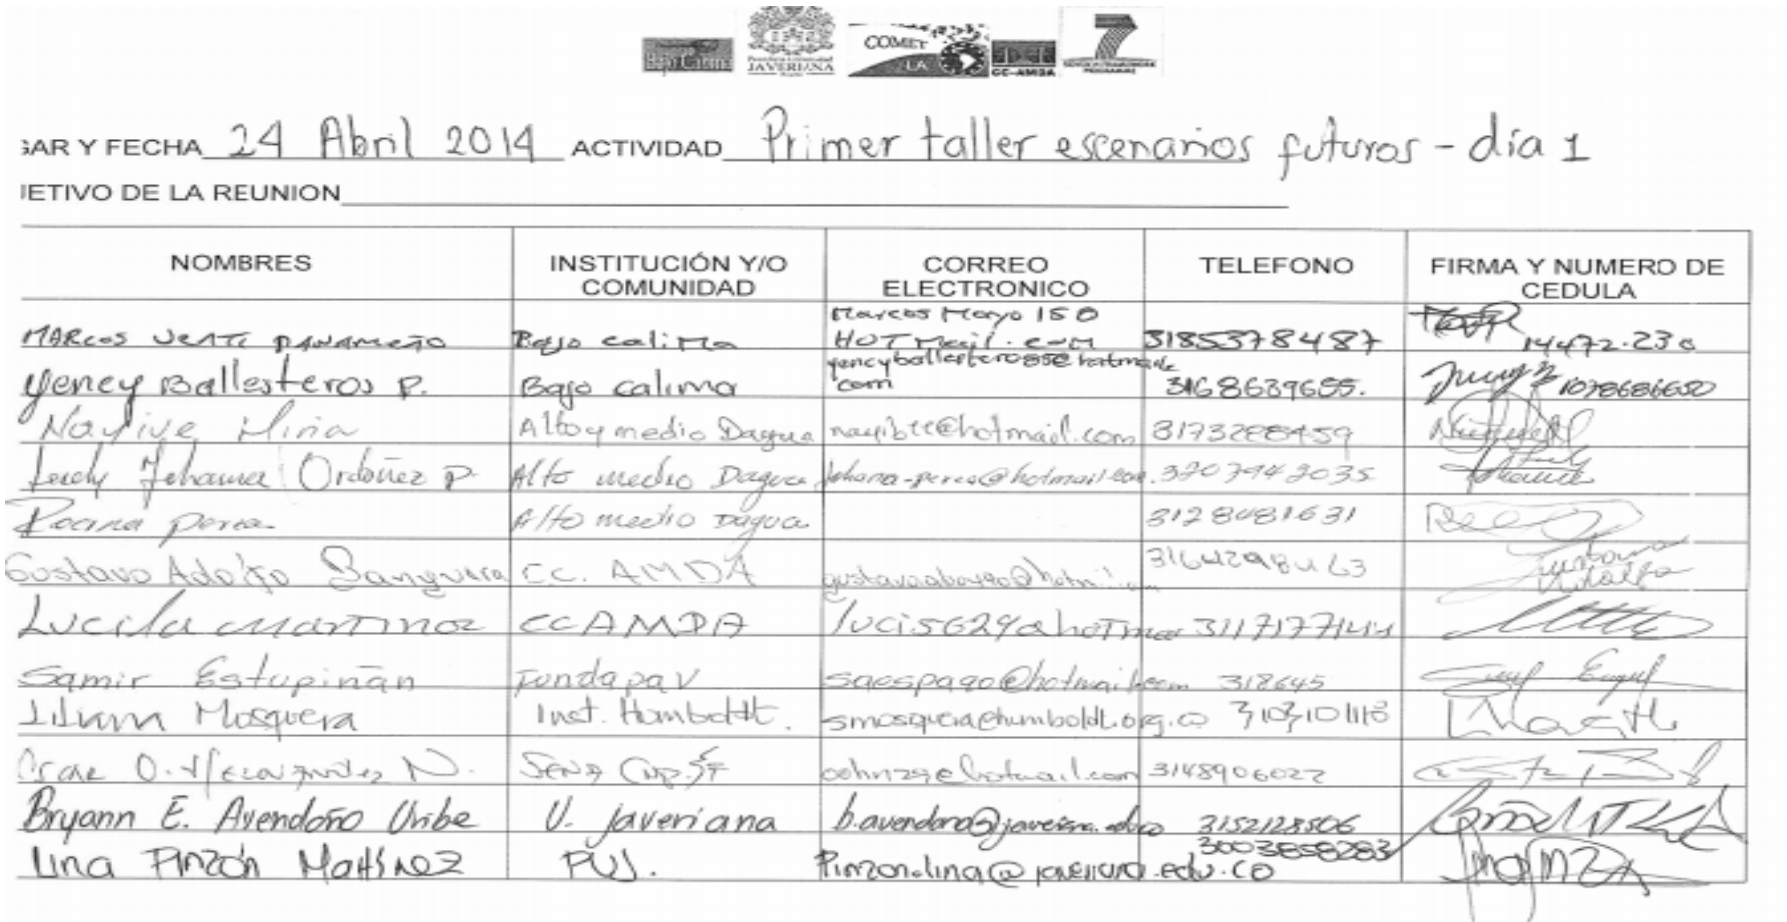 JAVERIANA
COMET
LA
CC-AMDA
7
GAR Y FECHA 24 Abril 2014 ACTIVIDAD Primer taller escenarios futuros - día 1
JETIVO DE LA REUNION
NOMBRES INSTITUCIÓN Y/O COMUNIDAD CORREO ELECTRONICO TELEFONO FIRMA Y NUMERO DE CEDULA
MARCOS VENTE PANAMEÑO Bajo calima Marcos Mayo 150 HOTMail.com 3185378487 14472.230
Yency Ballesteros P. Bajo calima com 3168639655. 1078686650
Nayive Mina Alto y medio Dagua @hotmail.com 3173288459
Leidy Johanna Ordoñez P. Alto medio Dagua johana-perea@hotmail.com 3207942035
Rocina perea Alto medio Dagua 3128481631
Gustavo Adolfo Sanguera CC. AMDA Gustavo Adolfo
Lucila martinez CCAMDA luci5629@hotma 3117177144
Samir Estupiñan Fundapav saespa90@hotmail.com 318645
Liliana Mosquera Inst. Humboldt. smosquera@humboldt.org.co 3103101118
O. N. Sena @hotmail.com 3148906022
Bryann E. Avendaño Uribe U. javeriana b.avendano@javeriana.edu.co 3152128506
Lina Pinzón Martínez PUJ. Pinzon.lina@javeriana.edu.co 3003858283